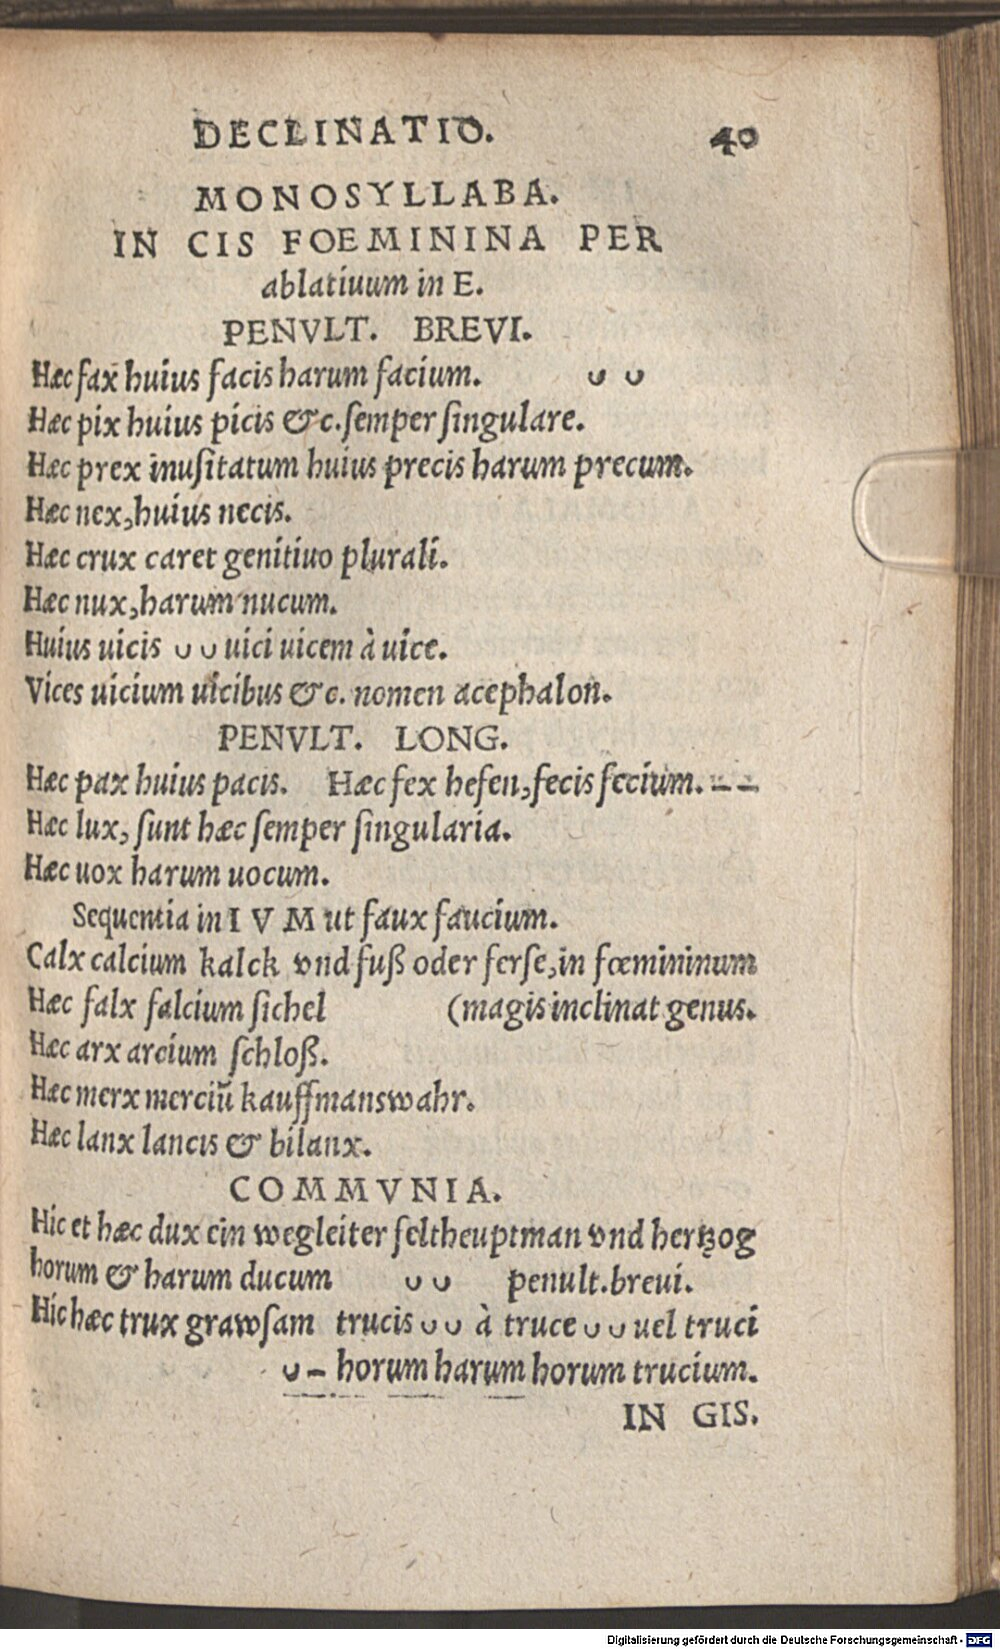 DECLINATIO. 40
MONOSYLLABA.
IN CIS FOEMININA PER
ablatiuum in E.
PENVLT. BREVI.
Hæc fax huius facis harum facium. ᴗ ᴗ
Hæc pix huius picis &c. semper singulare.
Hæc prex inusitatum huius precis harum precum.
Hæc nex, huius necis.
Hæc crux caret genitiuo plurali.
Hæc nux, harum nucum.
Huius uicis ᴗ ᴗ uici uicem à uice.
Vices uicium uicibus &c. nomen acephalon.
PENVLT. LONG.
Hæc pax huius pacis. Hæc fex hefen, fecis fecium. – –
Hæc lux, sunt hæc semper singularia.
Hæc uox harum uocum.
Sequentia in IVM ut faux faucium.
Calx calcium kalck vnd fuß oder ferse, in fœmininum
Hæc falx falcium sichel (magis inclinat genus.
Hæc arx arcium schloß.
Hæc merx merciū kauffmanswahr.
Hæc lanx lancis & bilanx.
COMMVNIA.
Hic et hæc dux ein wegleiter feltheuptman vnd hertzog
horum & harum ducum ᴗ ᴗ penult. breui.
Hic hæc trux grawsam trucis ᴗ ᴗ à truce ᴗ ᴗ uel truci
ᴗ – horum harum horum trucium.
IN GIS.
Digitalisierung gefördert durch die Deutsche Forschungsgemeinschaft - DFG